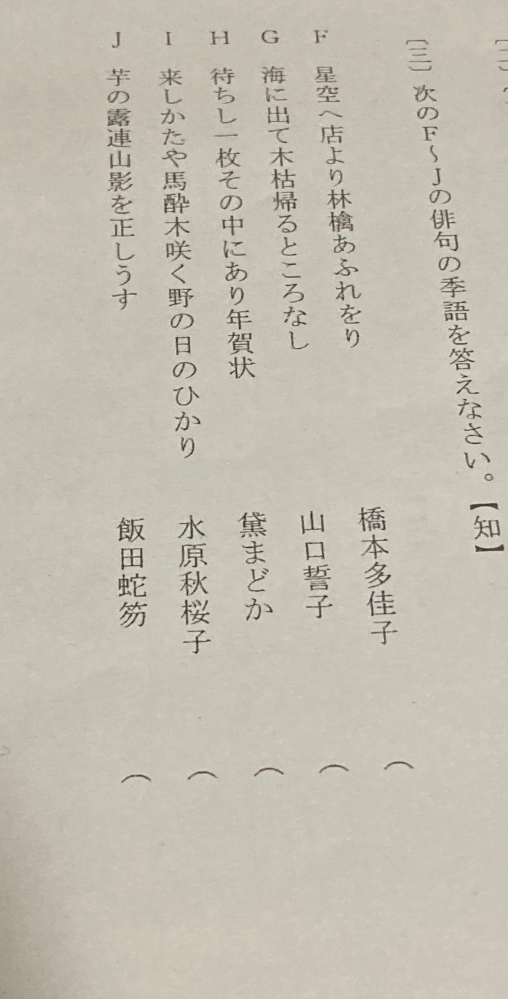 〔三〕 次のF～Jの俳句の季語を答えなさい。【知】
F 星空へ店より林檎あふれをり 橋本多佳子 （
G 海に出て木枯帰るところなし 山口誓子 （
H 待ちし一枚その中にあり年賀状 黛まどか （
I 来しかたや馬酔木咲く野の日のひかり 水原秋桜子 （
J 芋の露連山影を正しうす 飯田蛇笏 （